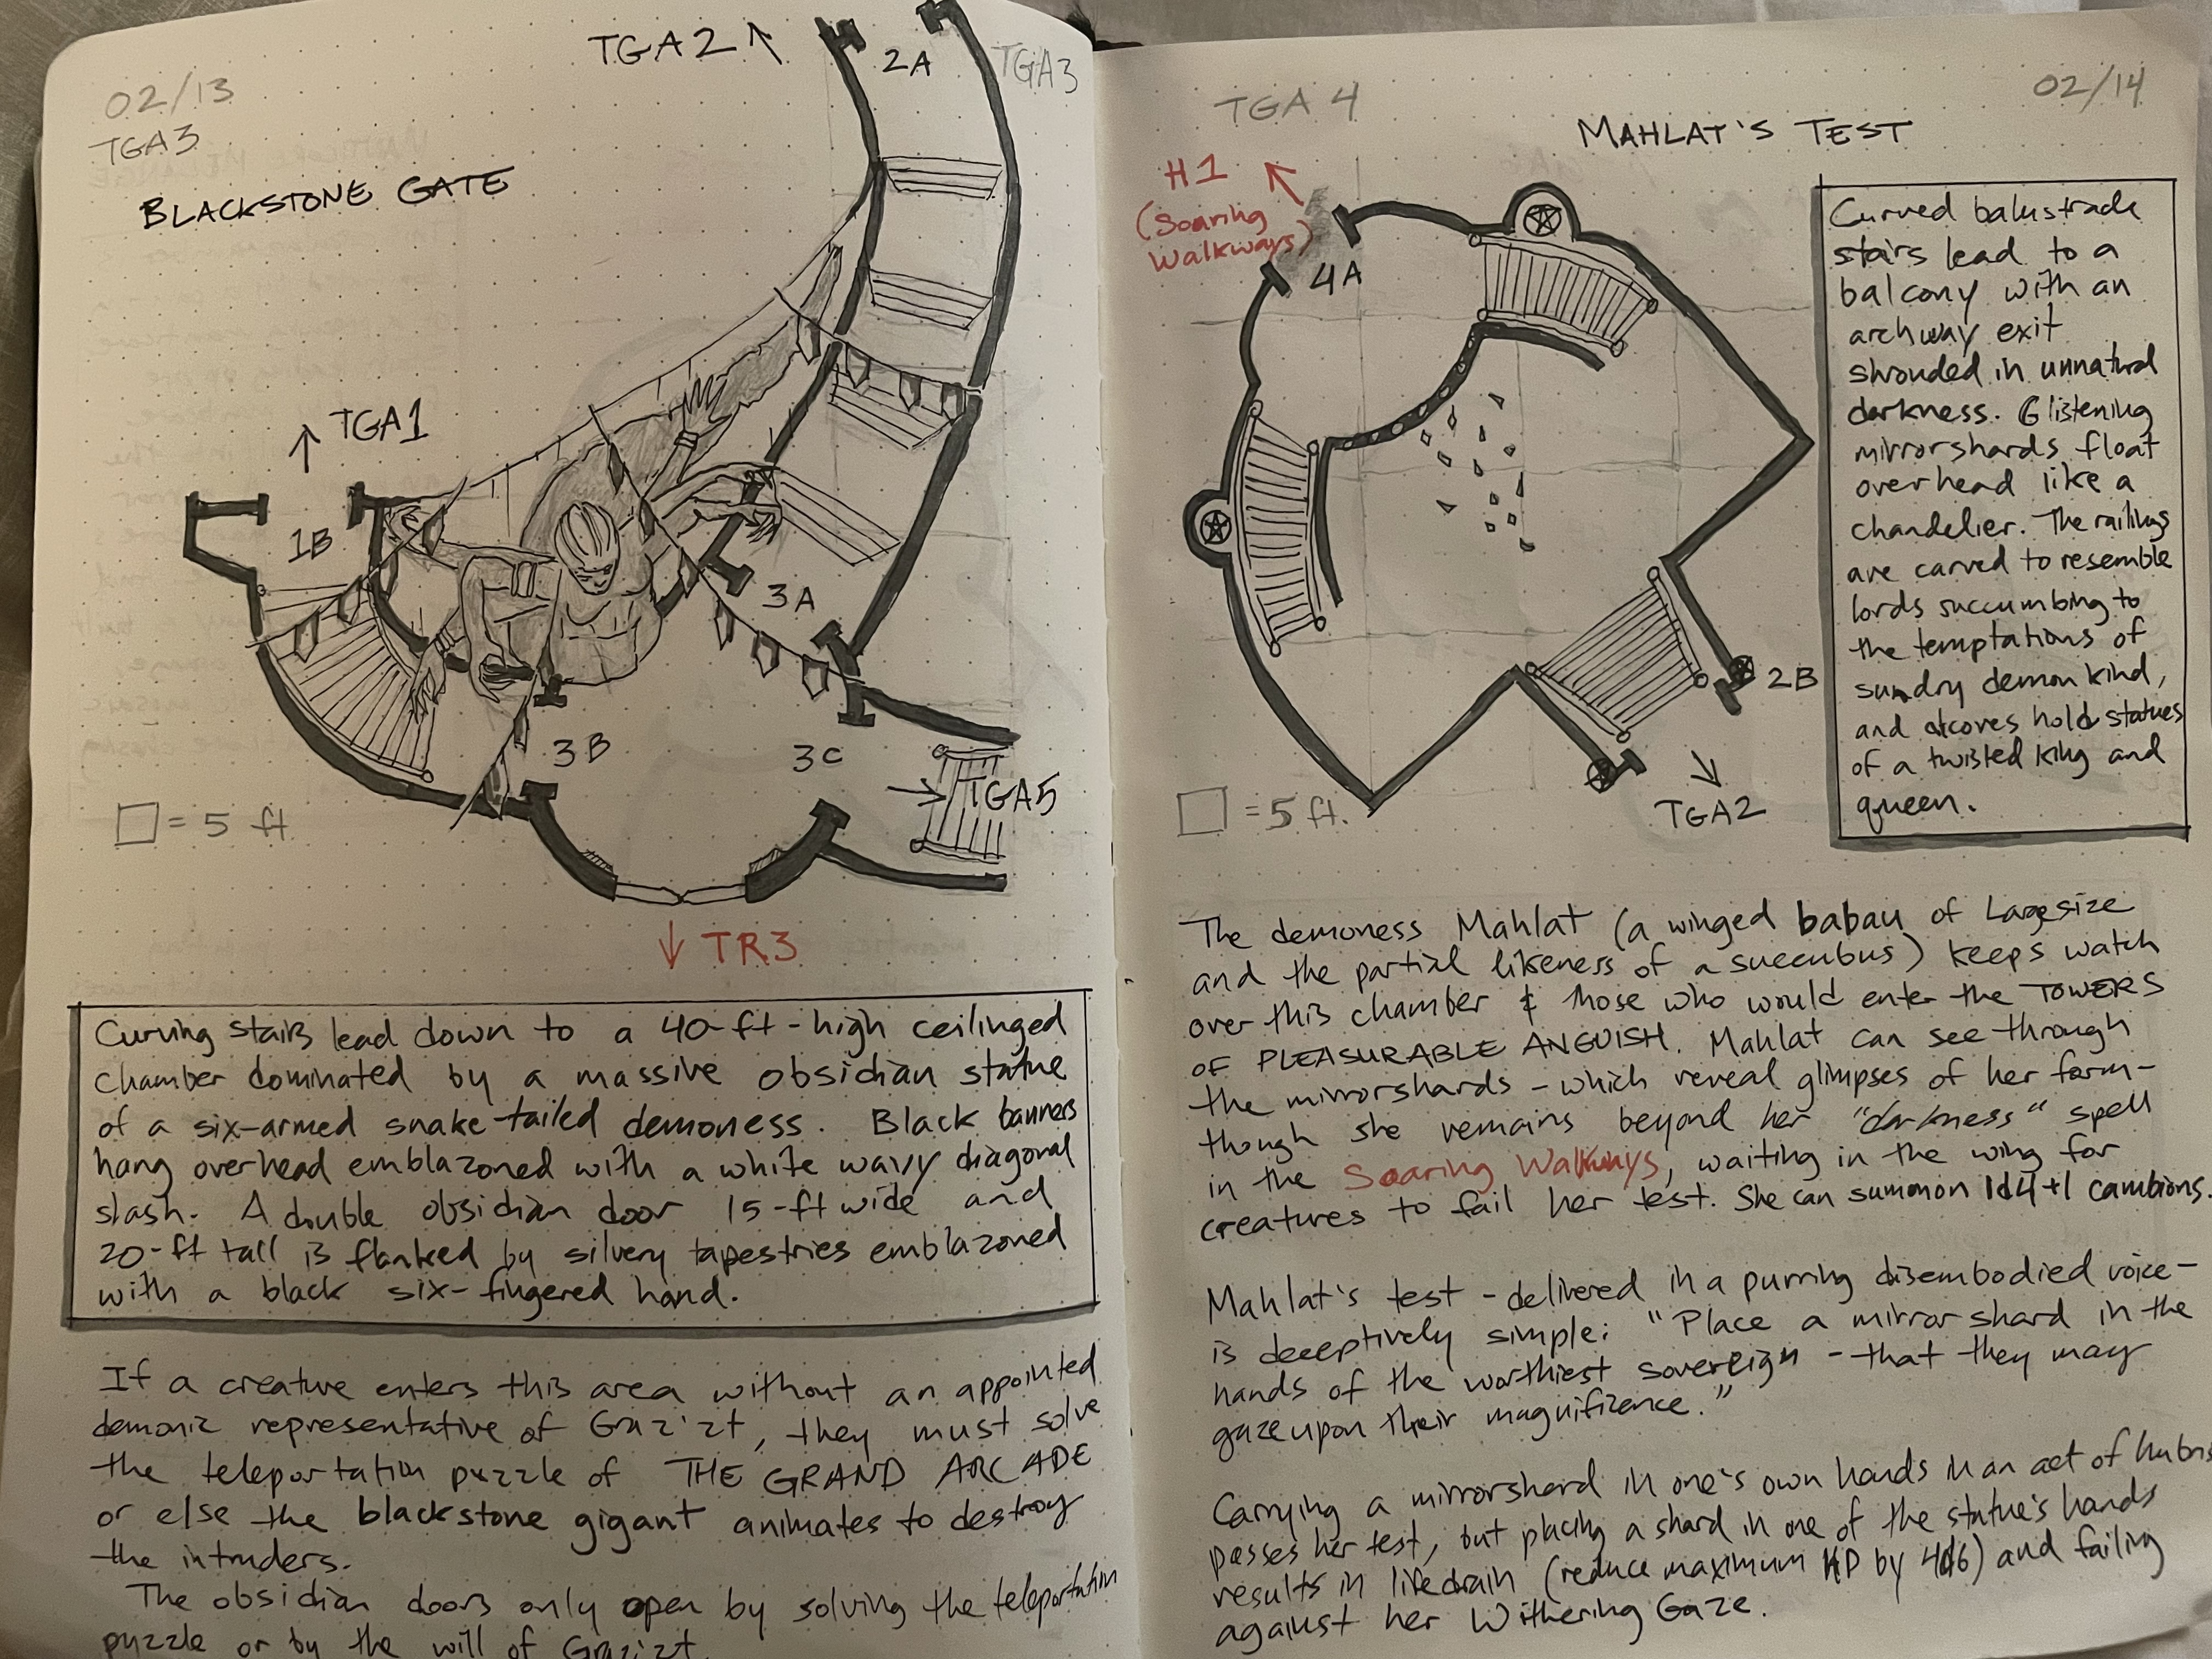 02/13
TGA3
BLACKSTONE GATE
TGA2 ↑
2A
TGA3
↑ TGA1
1B
3A
3B
3C
→ TGA5
□ = 5 ft.
↓ TR3
Curving stairs lead down to a 40-ft-high ceilinged
chamber dominated by a massive obsidian statue
of a six-armed snake-tailed demoness. Black banners
hang overhead emblazoned with a white wavy diagonal
slash. A double obsidian door 15-ft wide and
20-ft tall is flanked by silvery tapestries emblazoned
with a black six-fingered hand.
If a creature enters this area without an appointed
demonic representative of Graz'zt, they must solve
the teleportation puzzle of THE GRAND ARCADE
or else the blackstone gigant animates to destroy
the intruders.
The obsidian doors only open by solving the teleportation
puzzle or by the will of Graz'zt.
TGA 4
02/14
MAHLAT'S TEST
H1
(Soaring
Walkways)
4A
2B
TGA2
□ = 5 ft.
Curved balustrade
stairs lead to a
balcony with an
archway exit
shrouded in unnatural
darkness. Glistening
mirrorshards float
overhead like a
chandelier. The railings
are carved to resemble
lords succumbing to
the temptations of
sundry demonkind,
and alcoves hold statues
of a twisted king and
queen.
The demoness Mahlat (a winged babau of Large size
and the partial likeness of a succubus) keeps watch
over this chamber & those who would enter the TOWERS
OF PLEASURABLE ANGUISH. Mahlat can see through
the mirrorshards - which reveal glimpses of her form -
though she remains beyond her "darkness" spell
in the Soaring Walkways, waiting in the wing for
creatures to fail her test. She can summon 1d4+1 cambions.
Mahlat's test - delivered in a purring disembodied voice -
is deceptively simple: "Place a mirrorshard in the
hands of the worthiest sovereign - that they may
gaze upon their magnificence."
Carrying a mirrorshard in one's own hands in an act of hubris
passes her test, but placing a shard in one of the statue's hands
results in lifedrain (reduce maximum HP by 4d6) and failing
against her Withering Gaze.